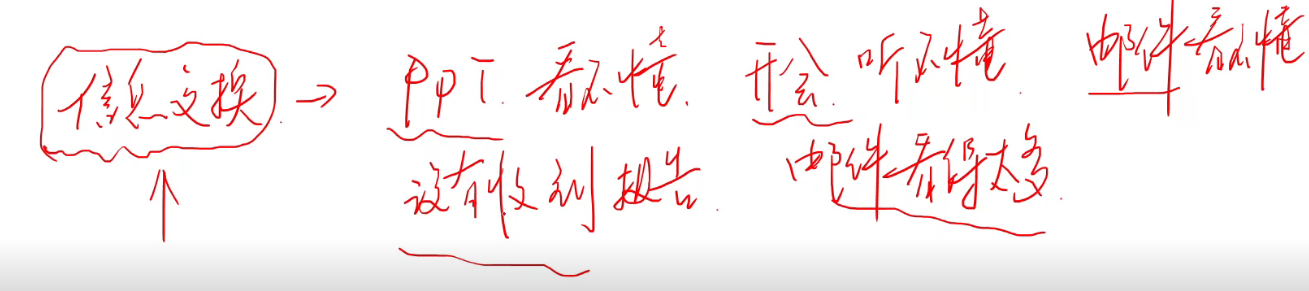 信息交换 → PPT 看不懂. 开会. 听不懂. 邮件看不懂
没有收到报告. 邮件看得太多.